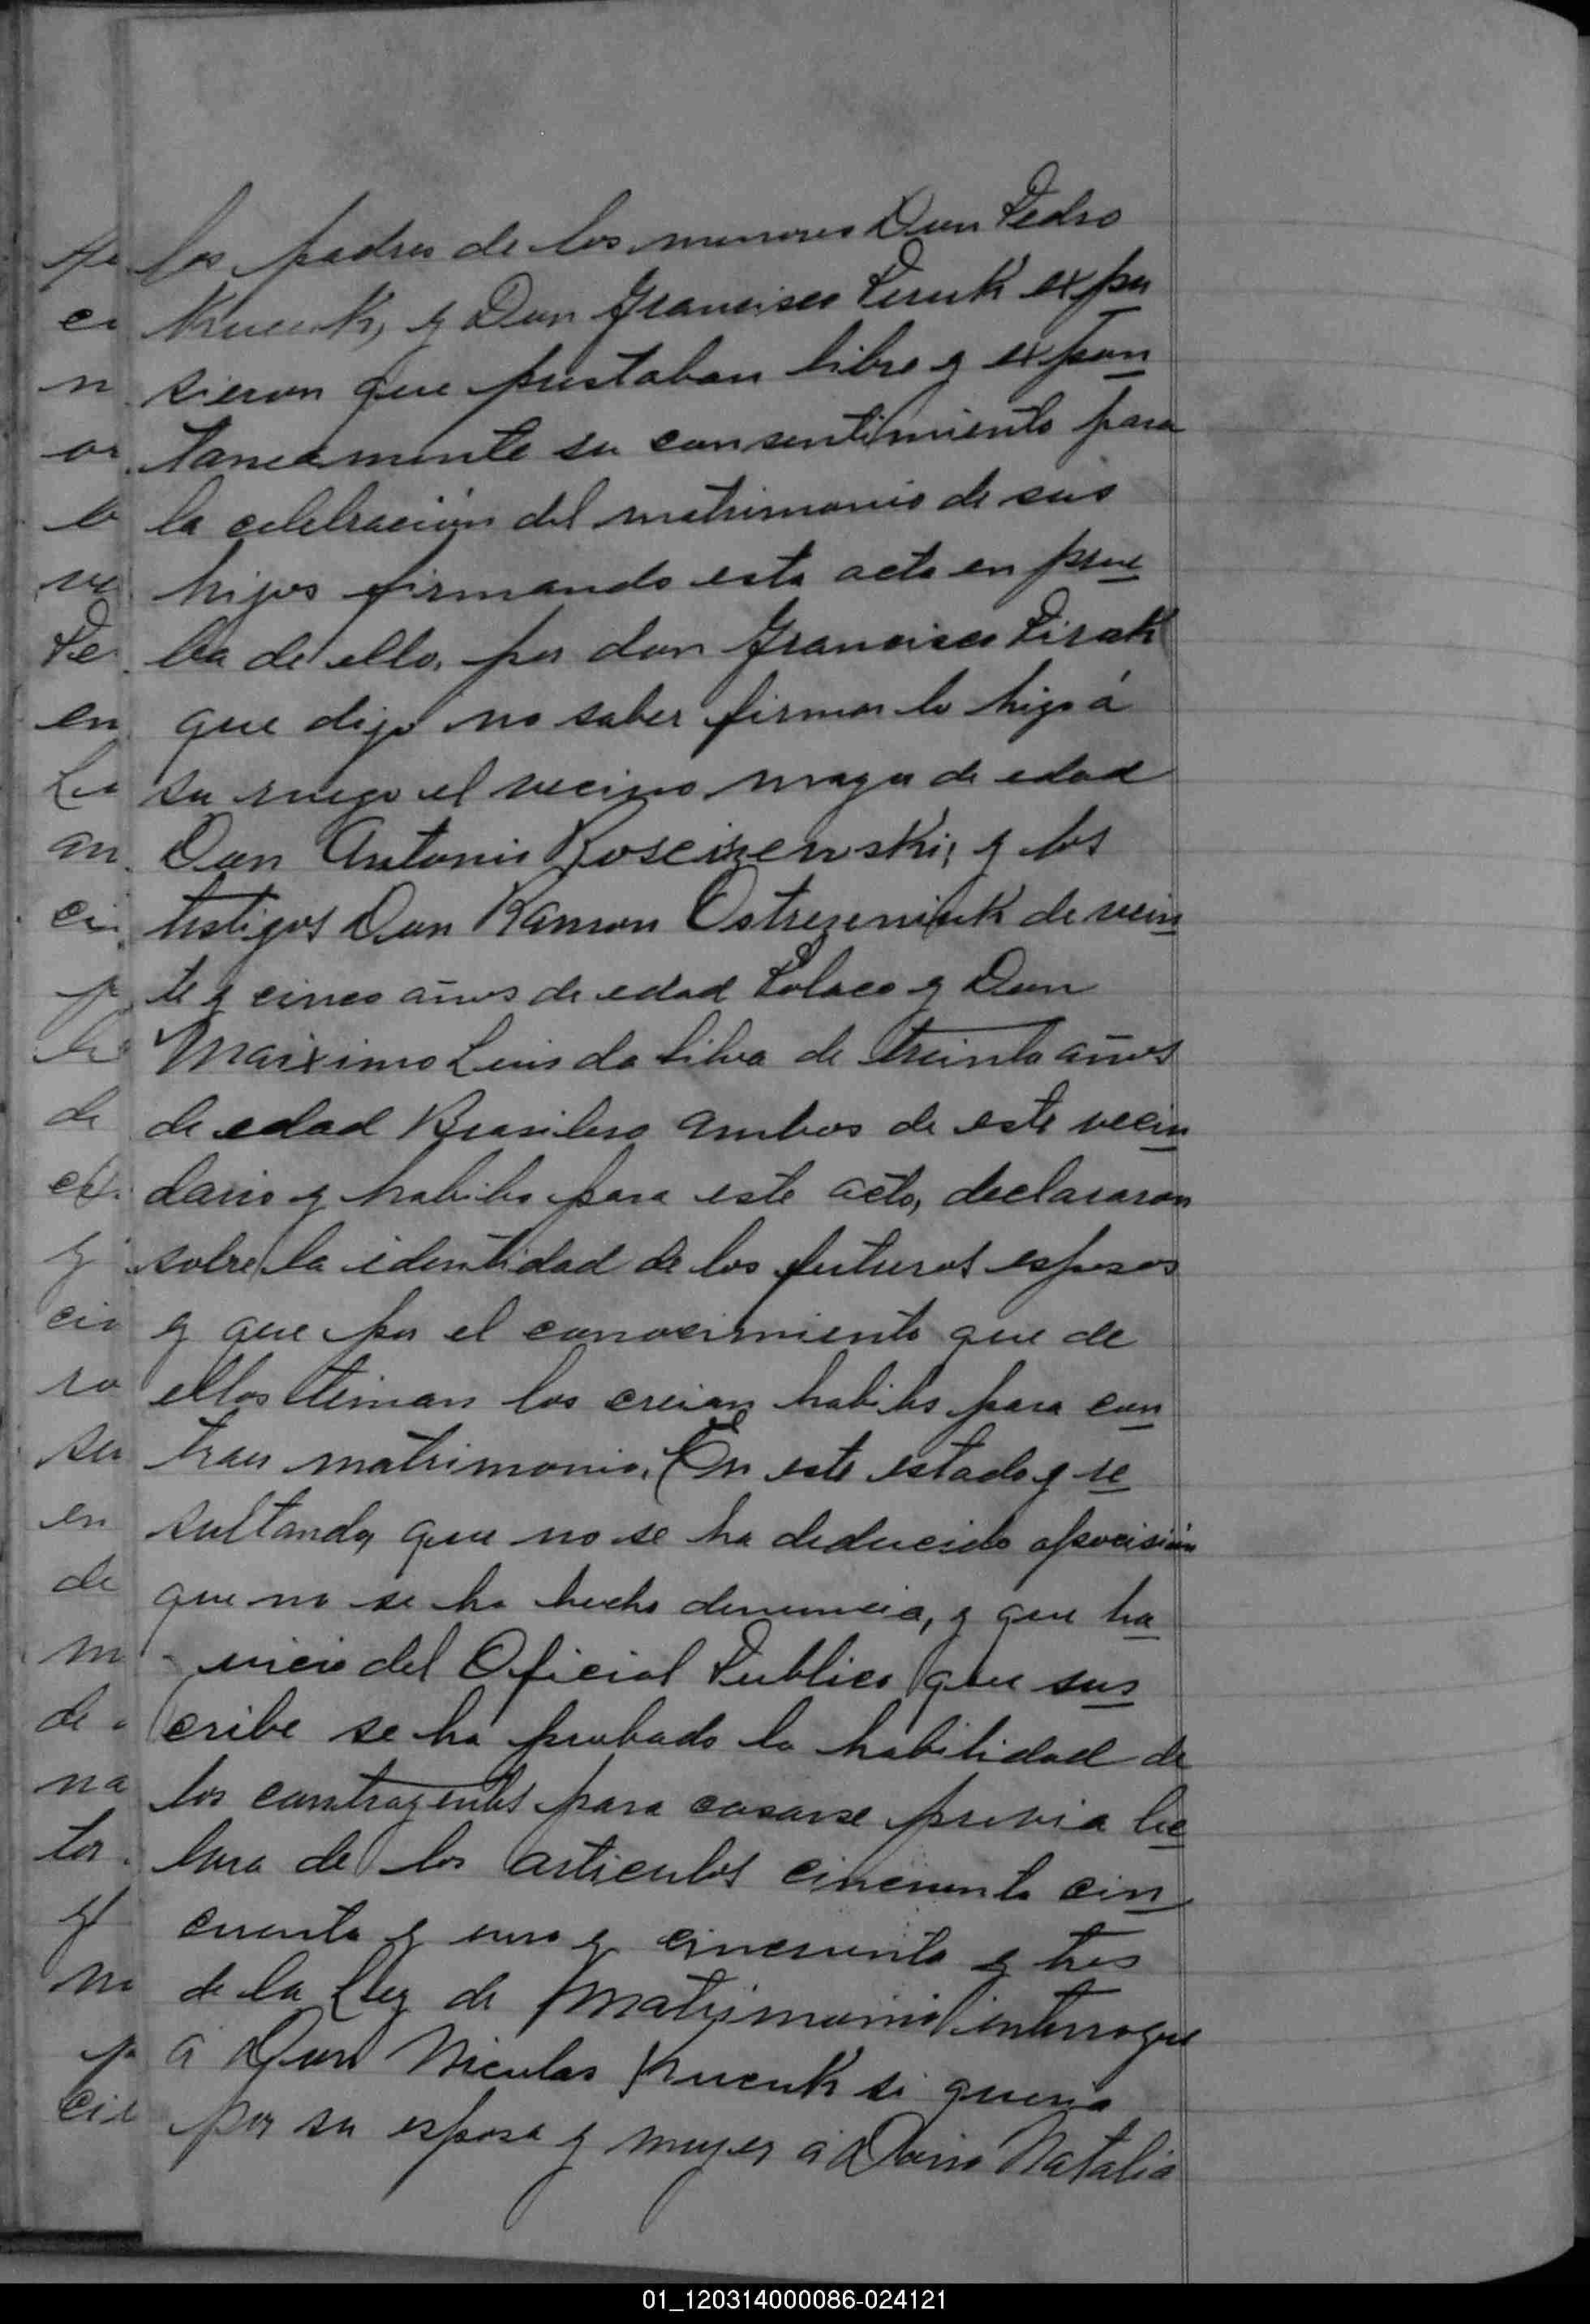 los padres de los menores Don Pedro
Kucuk, y Don Francisco Piruk expu
sieron que prestaban libre y expon
taneamente su consentimiento para
la celebración del matrimonio de sus
hijos firmando esta acta en prue
ba de ello, por don Francisco Piruk
que dijo no saber firmar lo hizo á
su ruego el vecino mayor de edad
Don Antonio Rosciszewski, y los
testigos Don Ramon Ostrezeniuk de vein
te y cinco años de edad Polaco y Don
Maiximo Luis da Silva de treinta años
de edad Brasilero ambos de este vecin
dario y habiles para este acto, declararon
sobre la identidad de los futuros esposos
y que por el conocimiento que de
ellos tenian los creian habiles para con
traer matrimonio. En este estado y re
sultando, que no se ha deducido oposicision
que no se ha hecho denuncia, y que ha
juicio del Oficial Publico que sus
cribe se ha probado la habilidad de
los contrayentes para casarse previa lec
tura de los articulos cincuenta cin
cuenta y uno y cincuenta y tres
de la Ley de Matrimonio interrogue
á Don Nicolas Kucuk si queria
por su esposa y mujer á Doña Natalia
01_120314000086-024121